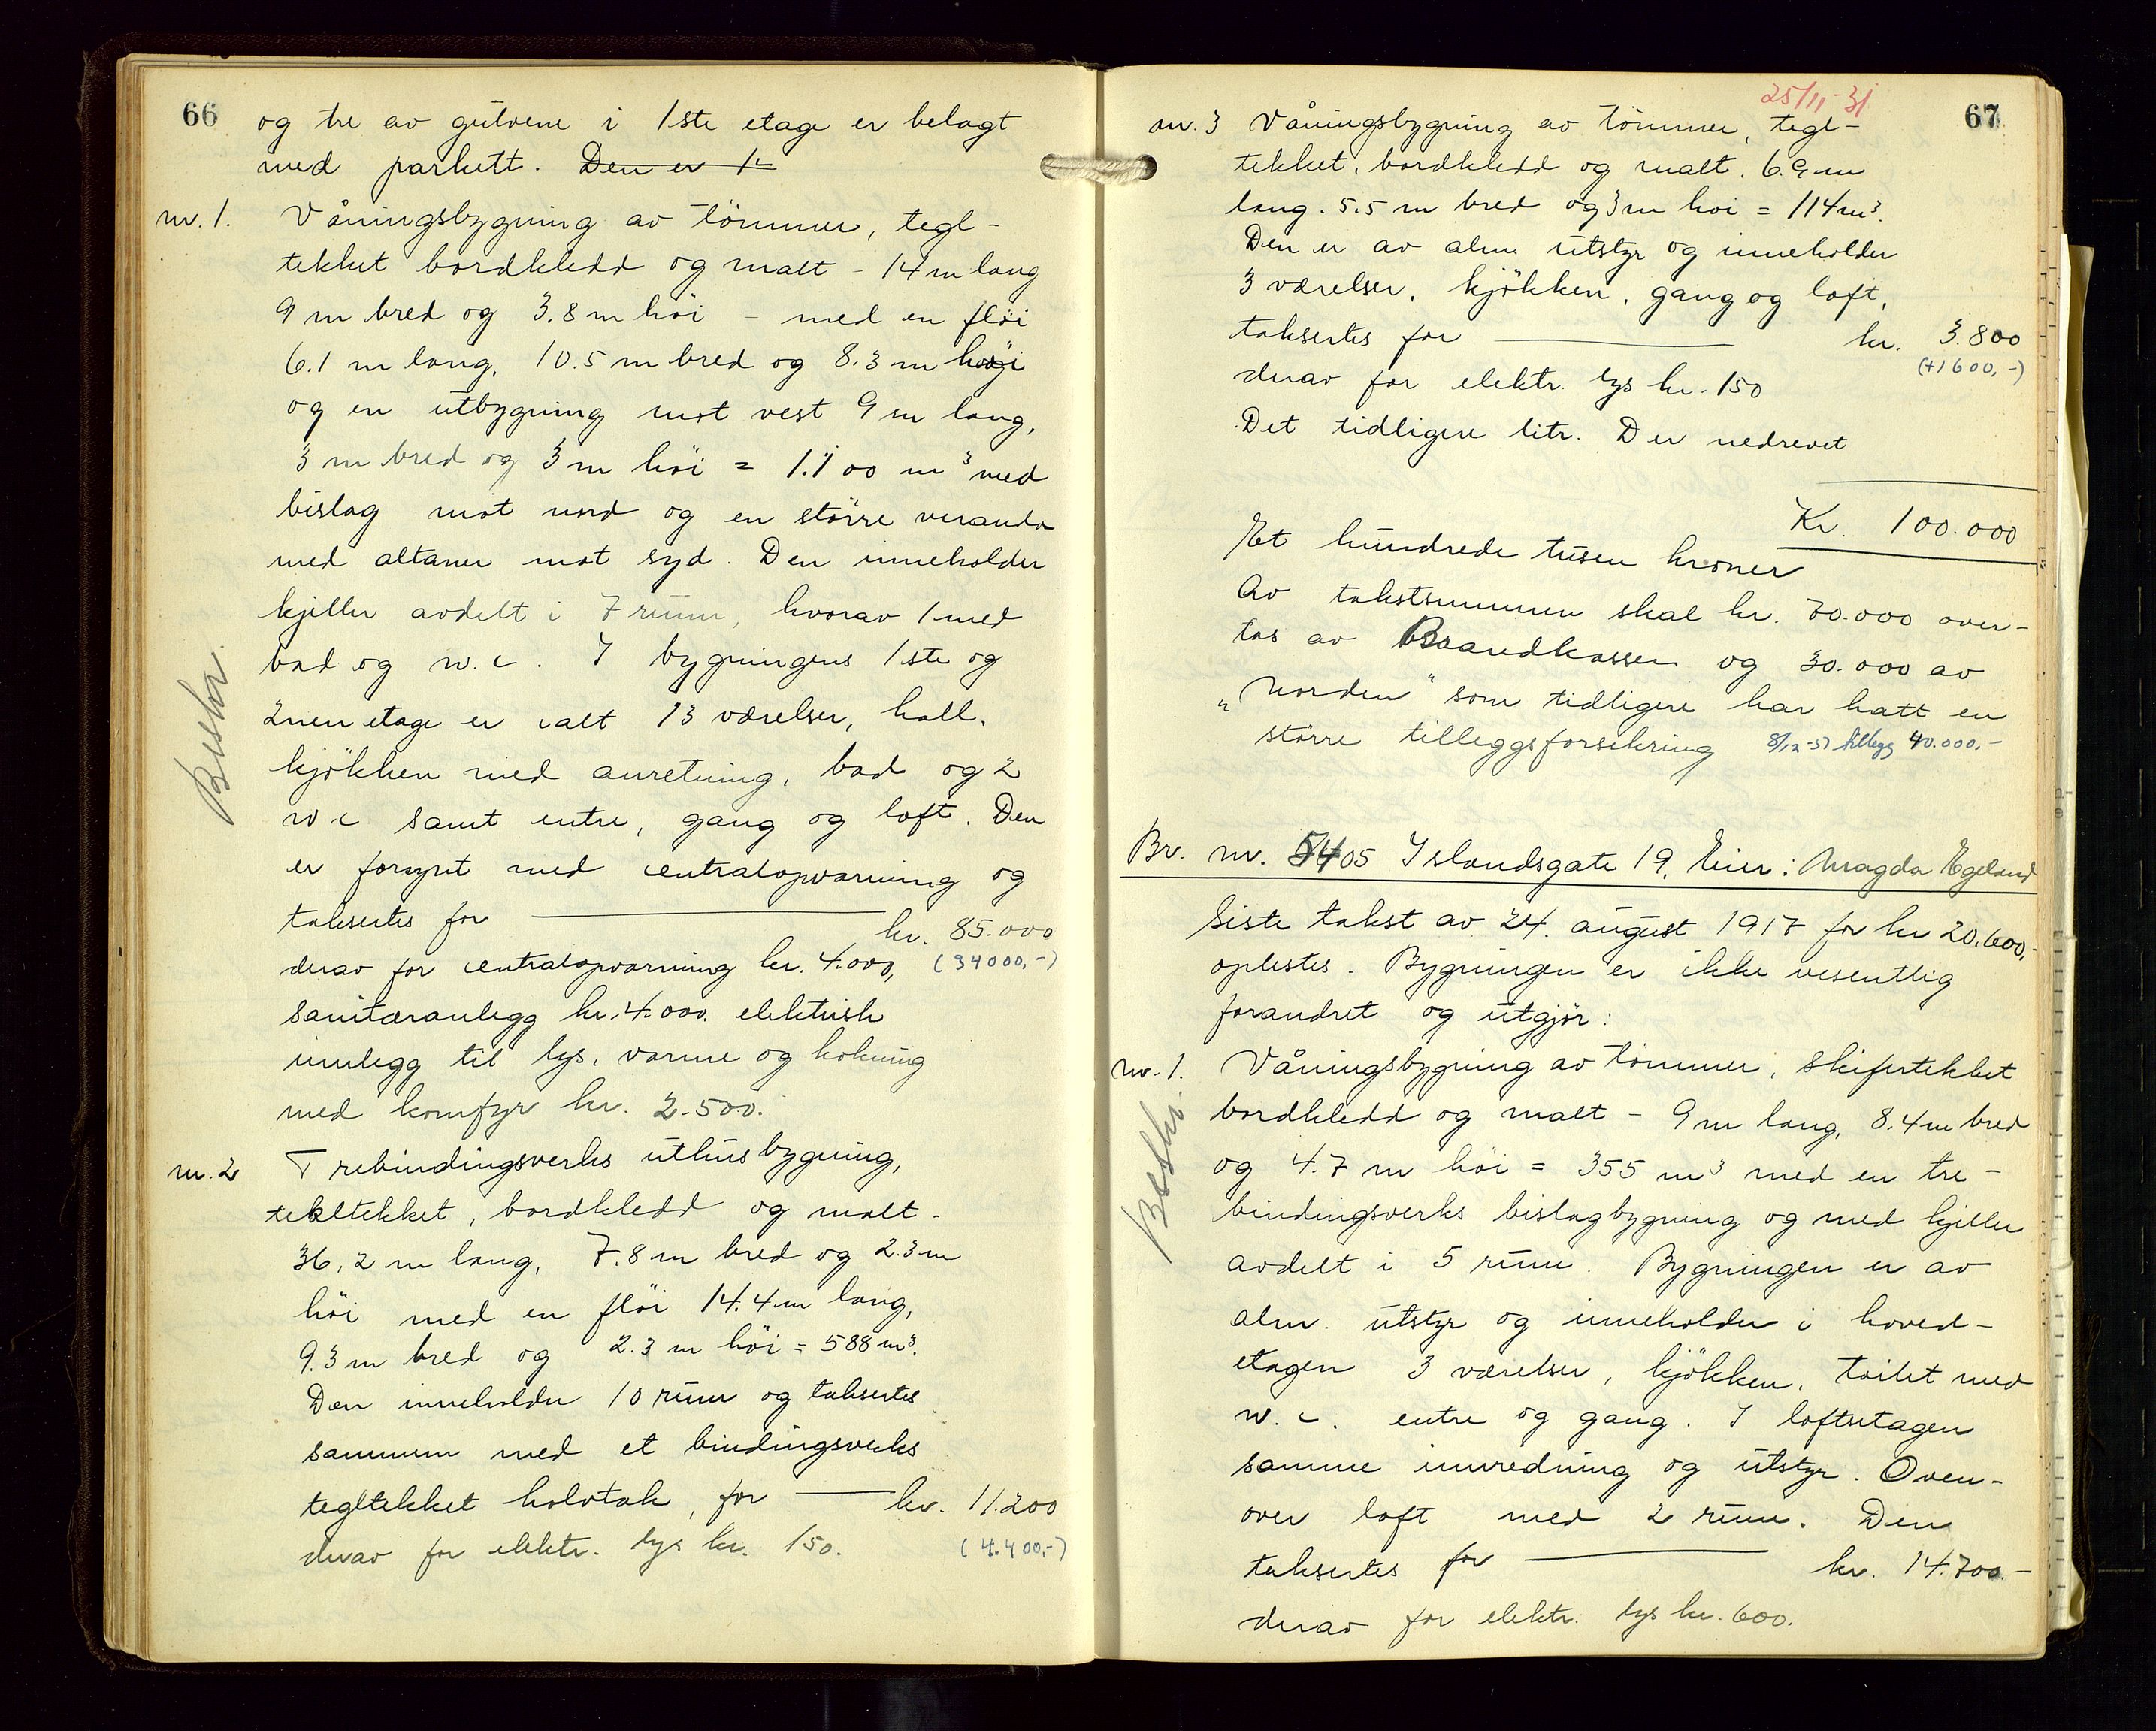 66
og tre av gulvene i 1ste etage er belagt
med parkett. Den er 1
nr. 1. Våningsbygning av tömmer, tegl-
tekket bordkledd og malt - 14 m lang
9 m bred og 3.8 m höi - med en flöi
6.1 m lang, 10.5 m bred og 8.3 m höi
og en utbygning mot vest 9 m lang,
3 m bred og 3 m höi = 1.100 m³ med
bislag mot nord og en större veranda
med altaner mot syd. Den inneholder
kjeller avdelt i 7 rum, hvorav 1 med
bad og w.c. I bygningens 1ste og
2nen etage er ialt 13 værelser, hall,
kjökken med anretning, bad og 2
w c samt entre, gang og loft. Den
er forsynt med centralopvarming og
taksertes for kr. 85.000
derav for centralopvarming kr. 4.000, (34000,-)
sanitæranlegg kr. 4.000. elektrisk
innlegg til lys, varme og kokning
med komfyr kr. 2.500.
nr. 2 Trebindingsverks uthusbygning,
tegltekket, bordkledd og malt -
36,2 m lang, 7.8 m bred og 2.3 m
höi med en flöi 14.4 m lang,
9.3 m bred og 2.3 m höi = 588 m³.
Den inneholder 10 rum og taksertes
sammen med et bindingsverks
tegltekket halvtak, for kr. 11.200
derav for elektr. lys kr. 150. (4.400,-)
Beskr.
25/11-31
67
nr. 3 Våningsbygning av tömmer, tegl-
tekket, bordkledd og malt. 6.9 m
lang. 5.5 m bred og 3 m höi = 114 m³.
Den er av alm. utstyr og inneholder
3 værelser, kjökken, gang og loft,
taksertes for kr. 3.800
(+1600,-)
derav for elektr. lys kr. 150
Det tidligere litr. D er nedrevet
Kr. 100.000
Et hundrede tusen kroner
Av takstsummen skal kr. 70.000 over-
tas av Brandkassen og 30.000 av
"Norden" som tidligere har hatt en
större tilleggsforsikring 8/12-51 tillegg 40.000,-
Br. nr. 5405 Islandsgate 19. Eier: Magda Egeland
Siste takst av 24. august 1917 for kr 20.600,-
oplestes. Bygningen er ikke vesentlig
forandret og utgjör:
nr. 1. Våningsbygning av tömmer, skifertekket
bordkledd og malt - 9 m lang, 8.4 m bred
og 4.7 m höi = 355 m³ med en tre-
bindingsverks bislagbygning og med kjeller
avdelt i 5 rum. Bygningen er av
alm. utstyr og inneholder i hoved-
etagen 3 værelser, kjökken, toilet med
w.c. entre og gang. I loftsetagen
samme innredning og utstyr. Oven-
over loft med 2 rum. Den
taksertes for kr. 14.700.-
derav for elektr. lys kr. 600.
Beskr.